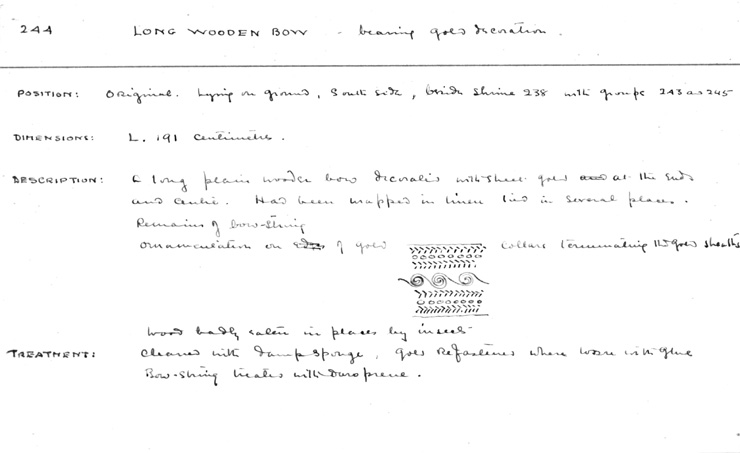 244 LONG WOODEN BOW - bearing gold decoration.
POSITION: Original. Lying on ground, South side, beside Shrine 238 with groups 243 and 245
DIMENSIONS: L. 191 centimetres.
DESCRIPTION: A long plain wooden bow decorated with sheet gold at the ends
and centre. Had been wrapped in linen tied in several places.
Remains of bow-string
Ornamentation on of gold collars terminating the gold sheaths
Wood badly eaten in places by insects
TREATMENT: Cleaned with damp sponge, gold refastened where loose with glue
Bow-string treated with Duroprene.